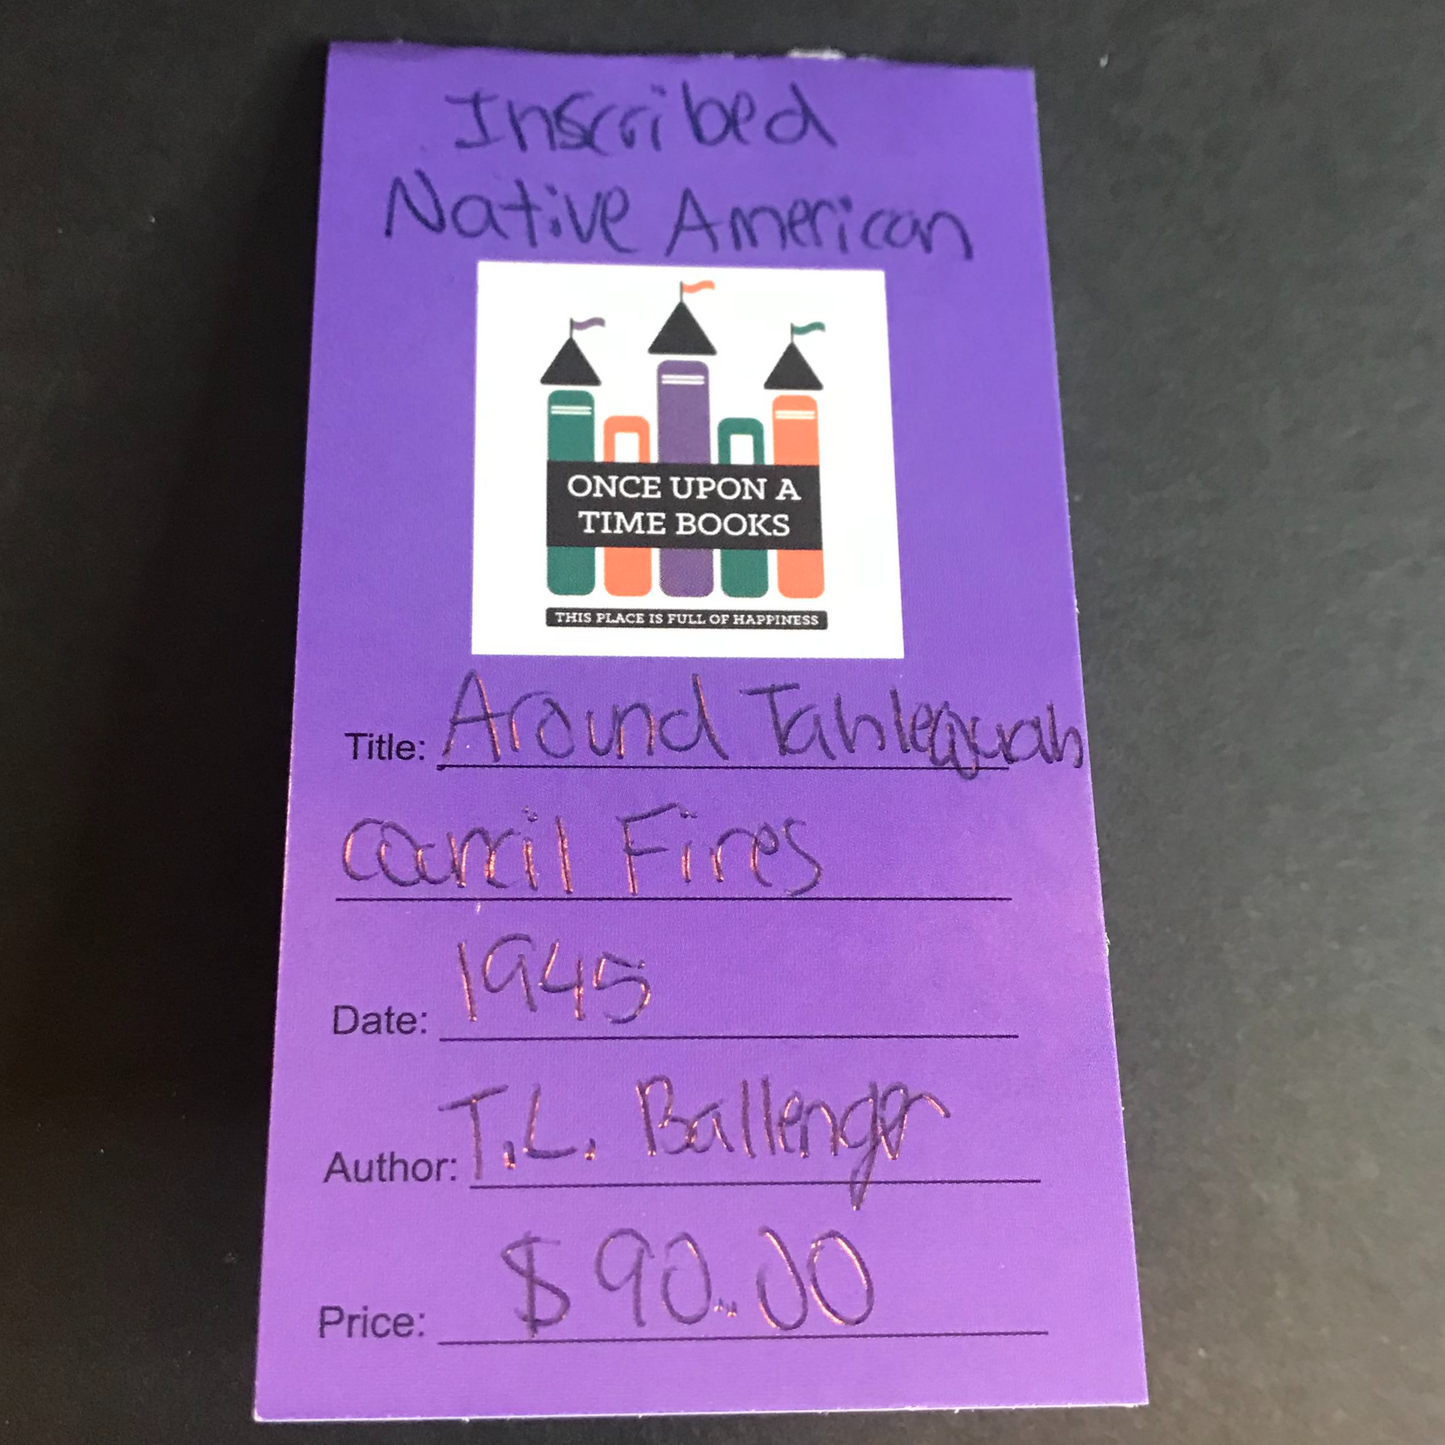 Inscribed
Native American
ONCE UPON A
TIME BOOKS
THIS PLACE IS FULL OF HAPPINESS
Title: Around Tahlequah
Council Fires
Date: 1945
Author: T.L. Ballenger
Price: $90.00